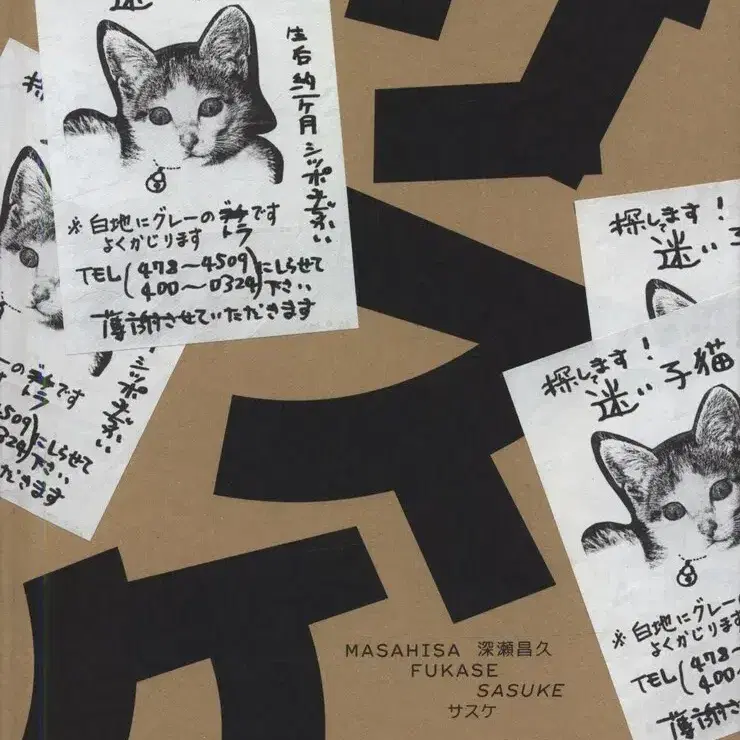 迷い
生后約一ヶ月 シッポ
※白地にグレーの トラです
よくかじります
TEL(478〜4509)にしらせて
400〜0324 下さい
薄謝させていただきます
探
ーの トラです
4509)にしらせて
0324)下さい
ただきます
シッポ
探してます!
迷い子
探してます!
迷い子猫
※白地にグレー
よくかじります
TEL(478〜
400〜
薄謝させ
MASAHISA 深瀬昌久
FUKASE
SASUKE
サスケ